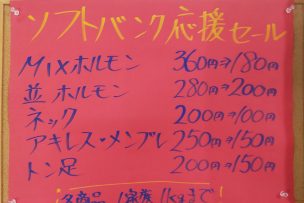 ソフトバンク応援セール
MIXホルモン 360円→180円
並ホルモン 280円→200円
ネック 200円→100円
アキレス・メンブレ 250円→150円
トン足 200円→150円
各商品 1家族 1kgまで